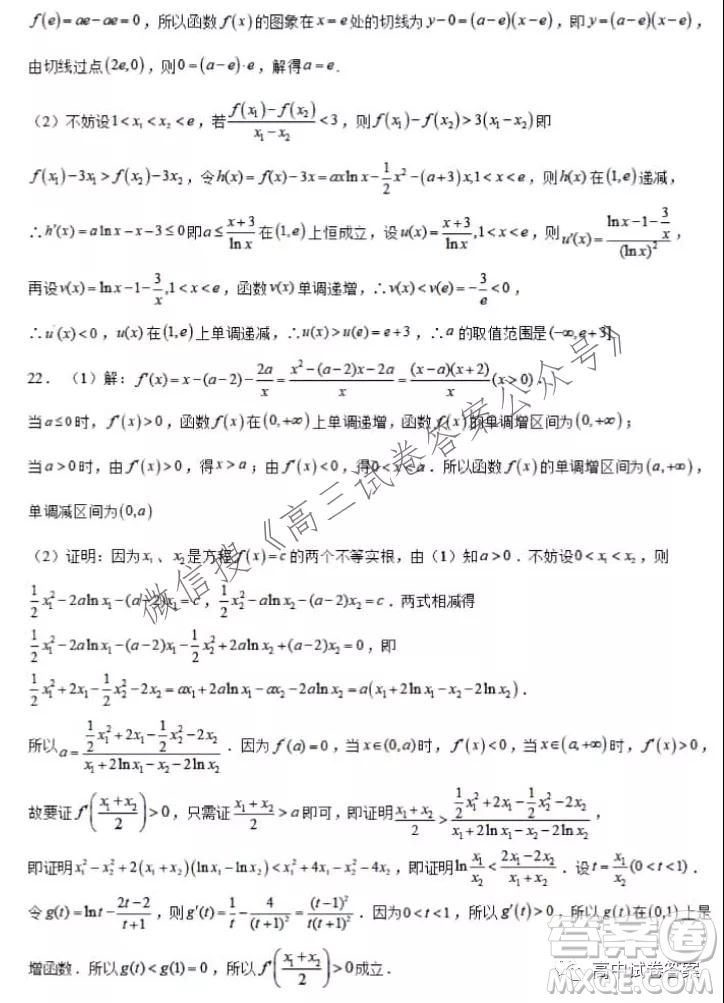 f(e)=ae-ae=0，所以函数f(x)的图象在x=e处的切线为y-0=(a-e)(x-e)，即y=(a-e)(x-e)，
由切线过点(2e,0)，则0=(a-e)·e，解得a=e．
（2）不妨设1<x₁<x₂<e，若(f(x₁)-f(x₂))/(x₁-x₂)<3，则f(x₁)-f(x₂)>3(x₁-x₂)即
f(x₁)-3x₁>f(x₂)-3x₂，令h(x)=f(x)-3x=axlnx-1/2x²-(a+3)x,1<x<e，则h(x)在(1,e)递减，
∴h'(x)=alnx-x-3≤0即a≤(x+3)/lnx在(1,e)上恒成立，设u(x)=(x+3)/lnx,1<x<e，则u'(x)=(lnx-1-3/x)/(lnx)²，
再设v(x)=lnx-1-3/x,1<x<e，函数v(x)单调递增，∴v(x)<v(e)=-3/e<0，
∴u'(x)<0，u(x)在(1,e)上单调递减，∴u(x)>u(e)=e+3，∴a的取值范围是(-∞,e+3]
22．（1）解：f'(x)=x-(a-2)-2a/x=(x²-(a-2)x-2a)/x=(x-a)(x+2)/x(x>0)．
当a≤0时，f'(x)>0，函数f(x)在(0,+∞)上单调递增，函数f(x)的单调增区间为(0,+∞)；
当a>0时，由f'(x)>0，得x>a；由f'(x)<0，得0<x<a．所以函数f(x)的单调增区间为(a,+∞)，
单调减区间为(0,a)
（2）证明：因为x₁、x₂是方程f(x)=c的两个不等实根，由（1）知a>0．不妨设0<x₁<x₂，则
1/2x₁²-2alnx₁-(a-2)x₁=c，1/2x₂²-2alnx₂-(a-2)x₂=c．两式相减得
1/2x₁²-2alnx₁-(a-2)x₁-1/2x₂²+2alnx₂+(a-2)x₂=0，即
1/2x₁²+2x₁-1/2x₂²-2x₂=ax₁+2alnx₁-ax₂-2alnx₂=a(x₁+2lnx₁-x₂-2lnx₂)．
所以a=(1/2x₁²+2x₁-1/2x₂²-2x₂)/(x₁+2lnx₁-x₂-2lnx₂)．因为f'(a)=0，当x∈(0,a)时，f'(x)<0，当x∈(a,+∞)时，f'(x)>0，
故要证f'((x₁+x₂)/2)>0，只需证(x₁+x₂)/2>a即可，即证明(x₁+x₂)/2>(1/2x₁²+2x₁-1/2x₂²-2x₂)/(x₁+2lnx₁-x₂-2lnx₂)，
即证明x₁²-x₂²+2(x₁+x₂)(lnx₁-lnx₂)<x₁²+4x₁-x₂²-4x₂，即证明ln x₁/x₂<(2x₁-2x₂)/(x₁+x₂)．设t=x₁/x₂(0<t<1)．
令g(t)=lnt-(2t-2)/(t+1)，则g'(t)=1/t-4/(t+1)²=(t-1)²/(t(t+1)²)．因为0<t<1，所以g'(t)>0，所以g(t)在(0,1)上是
增函数．所以g(t)<g(1)=0，所以f'((x₁+x₂)/2)>0成立．
微信搜《高三试卷答案公众号》
高中试卷答案
答案圈
MXQE.COM